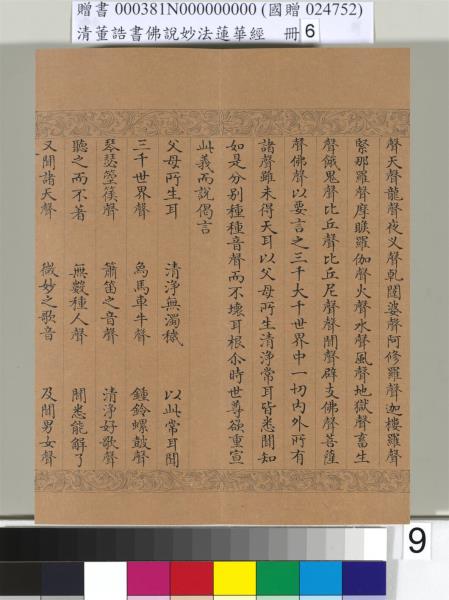 贈書 000381N000000000 (國贈 024752)
清董誥書佛說妙法蓮華經 冊6
聲天聲龍聲夜叉聲乾闥婆聲阿修羅聲迦樓羅聲
緊那羅聲摩睺羅伽聲火聲水聲風聲地獄聲畜生
聲餓鬼聲比丘聲比丘尼聲聲聞聲辟支佛聲菩薩
聲佛聲以要言之三千大千世界中一切內外所有
諸聲雖未得天耳以父母所生清淨常耳皆悉聞知
如是分別種種音聲而不壞耳根尒時世尊欲重宣
此義而說偈言
父母所生耳 清淨無濁穢 以此常耳聞
三千世界聲 象馬車牛聲 鍾鈴螺鼓聲
琴瑟箜篌聲 簫笛之音聲 清淨好歌聲
聽之而不著 無數種人聲 聞悉能解了
又聞諸天聲 微妙之歌音 及聞男女聲
9